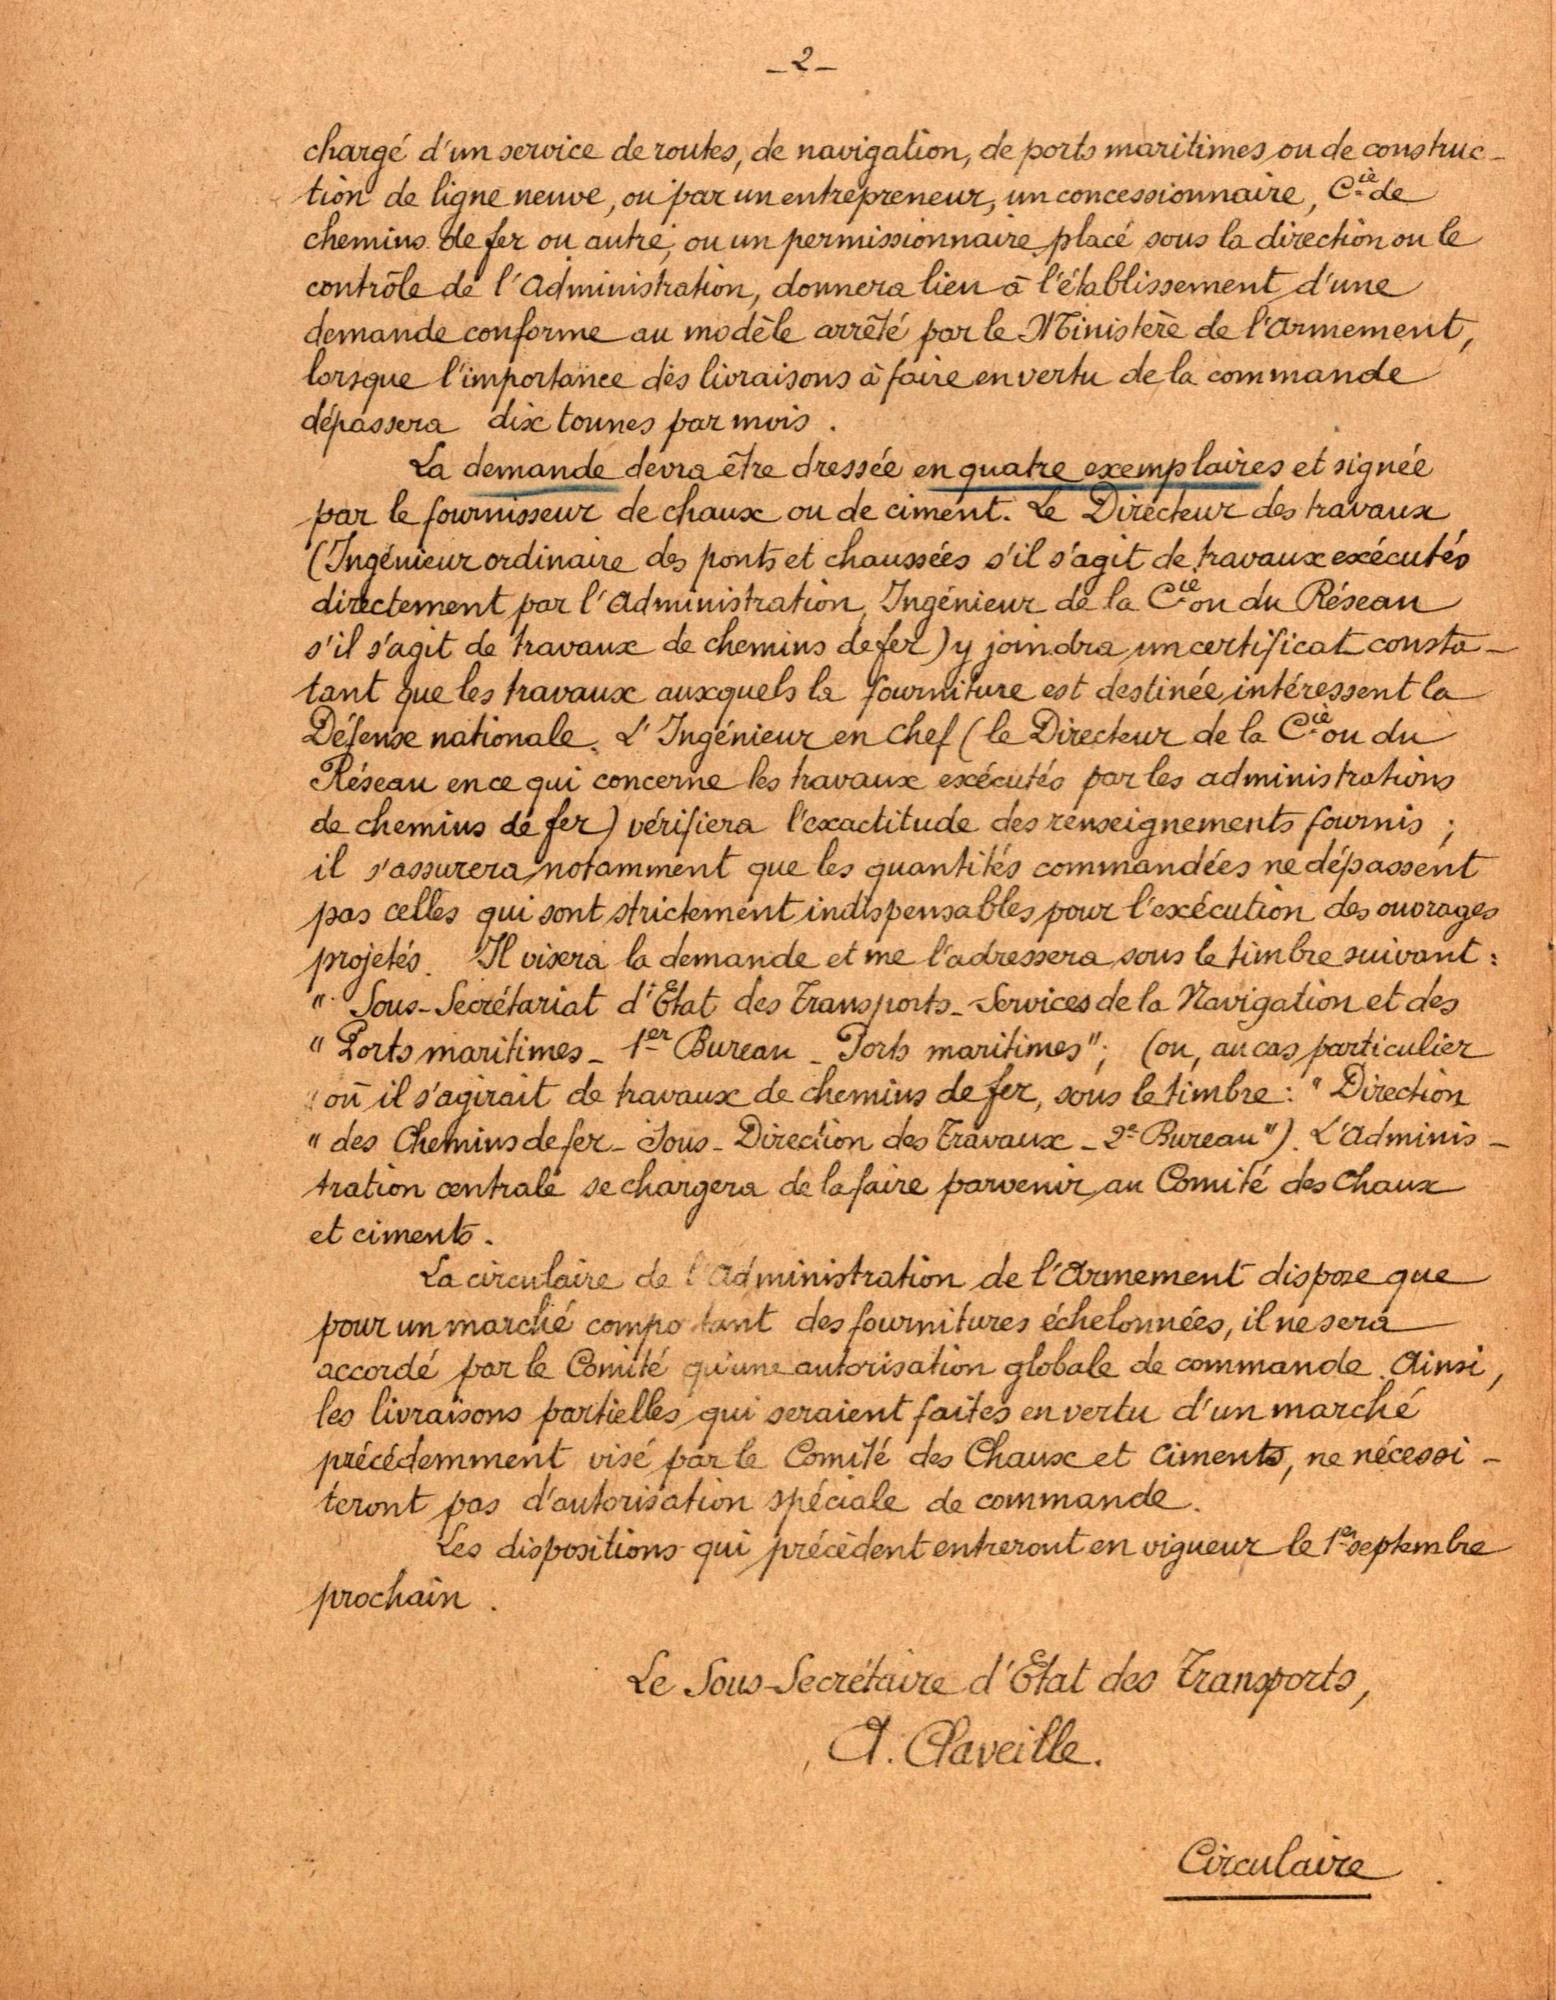 _2_
chargé d'un service de routes, de navigation, de ports maritimes ou de construc-
tion de ligne neuve, ou par un entrepreneur, un concessionnaire, Cie de
chemins de fer ou autre, ou un permissionnaire placé sous la direction ou le
contrôle de l'Administration, donnera lieu à l'établissement d'une
demande conforme au modèle arrêté par le Ministère de l'Armement,
lorsque l'importance des livraisons à faire en vertu de la commande
dépassera dix tonnes par mois.
La demande devra être dressée en quatre exemplaires et signée
par le fournisseur de chaux ou de ciment. Le Directeur des travaux
(Ingénieur ordinaire des ponts et chaussées s'il s'agit de travaux exécutés
directement par l'Administration, Ingénieur de la Cie ou du Réseau
s'il s'agit de travaux de chemins de fer) y joindra un certificat consta-
tant que les travaux auxquels la fourniture est destinée intéressent la
Défense nationale. L'Ingénieur en chef (le Directeur de la Cie ou du
Réseau en ce qui concerne les travaux exécutés par les administrations
de chemins de fer) vérifiera l'exactitude des renseignements fournis ;
il s'assurera notamment que les quantités commandées ne dépassent
pas celles qui sont strictement indispensables pour l'exécution des ouvrages
projetés. Il visera la demande et me l'adressera sous le timbre suivant :
" Sous-Secrétariat d'Etat des Transports_ Services de la Navigation et des
" Ports maritimes_ 1er Bureau _ Ports maritimes"; (ou, au cas particulier
où il s'agirait de travaux de chemins de fer, sous le timbre : " Direction
" des Chemins de fer_ Sous-Direction des Travaux _ 2e Bureau"). L'Adminis-
tration centrale se chargera de la faire parvenir au Comité des Chaux
et ciments.
La circulaire de l'Administration de l'Armement dispose que
pour un marché compo tant des fournitures échelonnées, il ne sera
accordé par le Comité qu'une autorisation globale de commande. Ainsi,
les livraisons partielles qui seraient faites en vertu d'un marché
précédemment visé par le Comité des Chaux et Ciments, ne nécessi-
teront pas d'autorisation spéciale de commande.
Les dispositions qui précèdent entreront en vigueur le 1er septembre
prochain.
Le Sous-Secrétaire d'Etat des Transports,
A. Claveille.
Circulaire